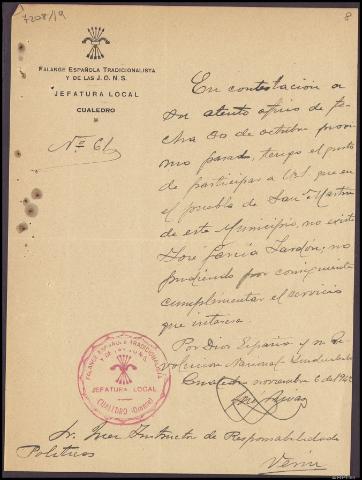 7208/19
8
FALANGE ESPAÑOLA TRADICIONALISTA
Y DE LAS J. O. N. S.
JEFATURA LOCAL
CUALEDRO
Nº 61
En contestación a
su atento oficio de fe-
cha 30 de octubre proxi-
mo pasado, tengo el gusto
de participar a Vd. que en
el pueblo de San Martin
de este Municipio, no existe
José García
no
pudiendo por consiguiente
cumplimentar el servicio
que interesa.
Por Dios España y su Re-
volución Nacional Sindicalista
Cualedro noviembre 6 de 1942
FALANGE ESPAÑOLA TRADICIONALISTA
Y DE LAS J.O.N.S.
JEFATURA LOCAL
CUALEDRO (Orense)
Sr. Juez Instructor de Responsabilidades
Politicas
Verin